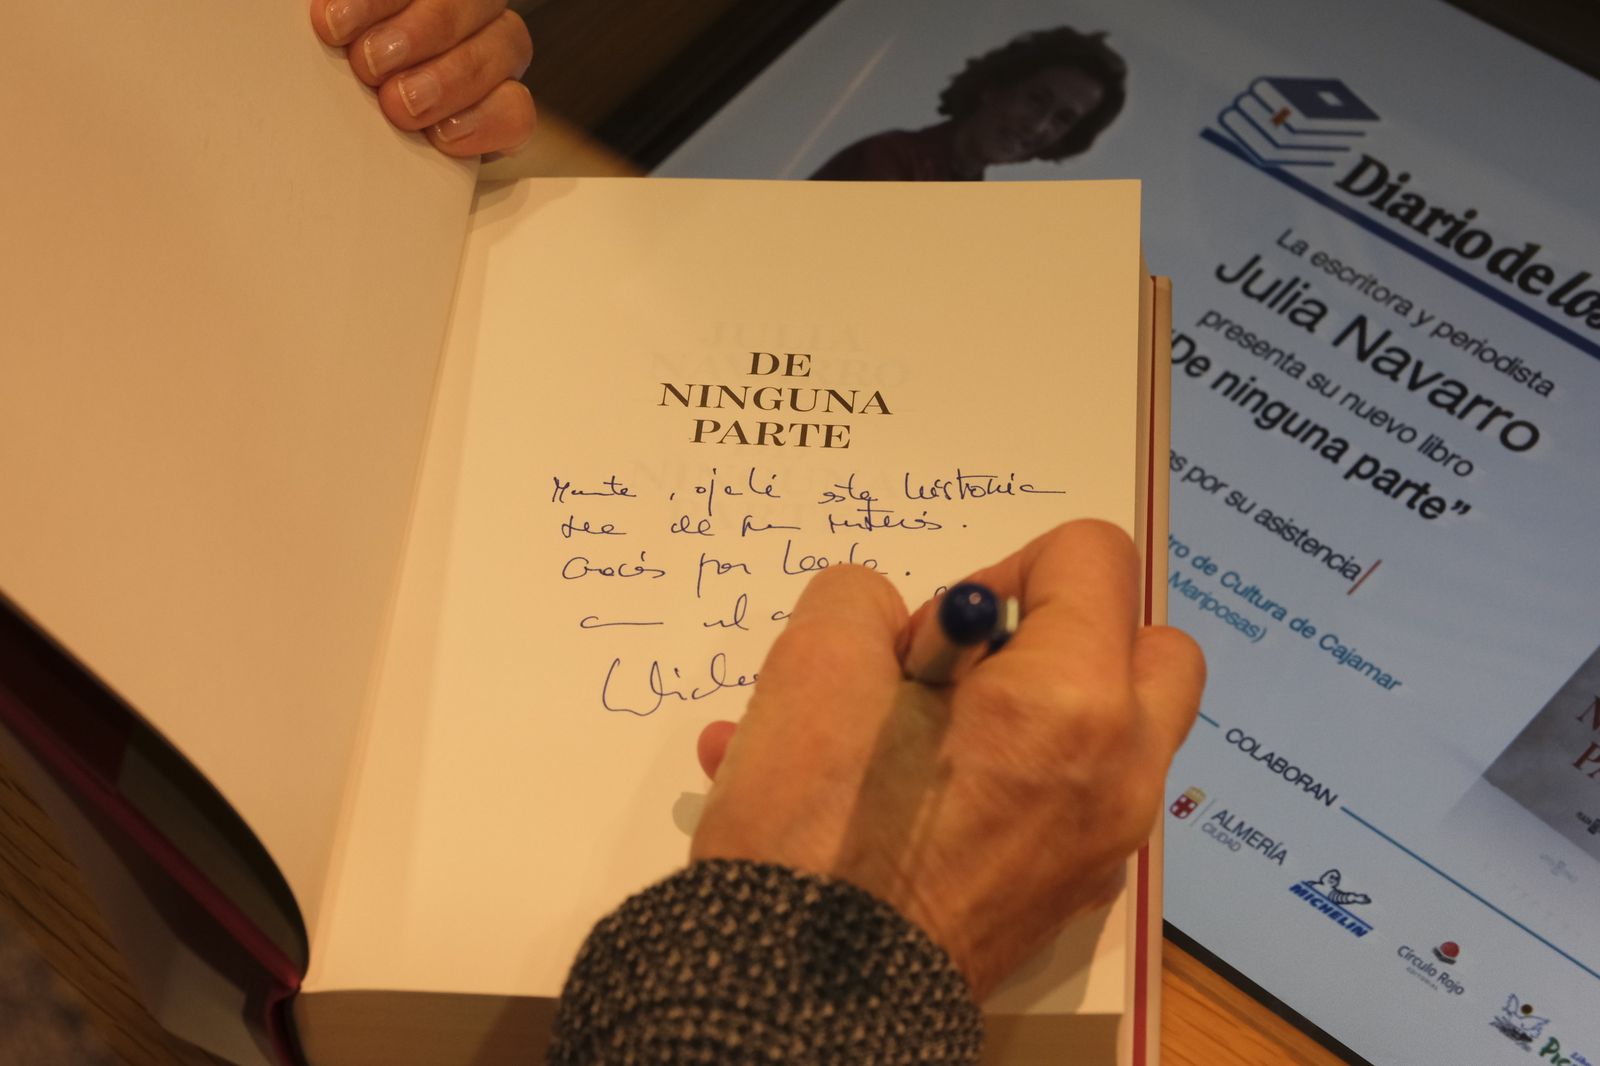 DE
NINGUNA
PARTE
, ojalá esta historia
sea de su interés.
Gracias por leerla.
con el
JULIA
NAVARRO
Diario de los
La escritora y periodista
Julia Navarro
presenta su nuevo libro
"De ninguna parte"
por su asistencia
de Cultura de Cajamar
Mariposas)
COLABORAN
ALMERÍA
CIUDAD
MICHELIN
Círculo Rojo
EDITORIAL